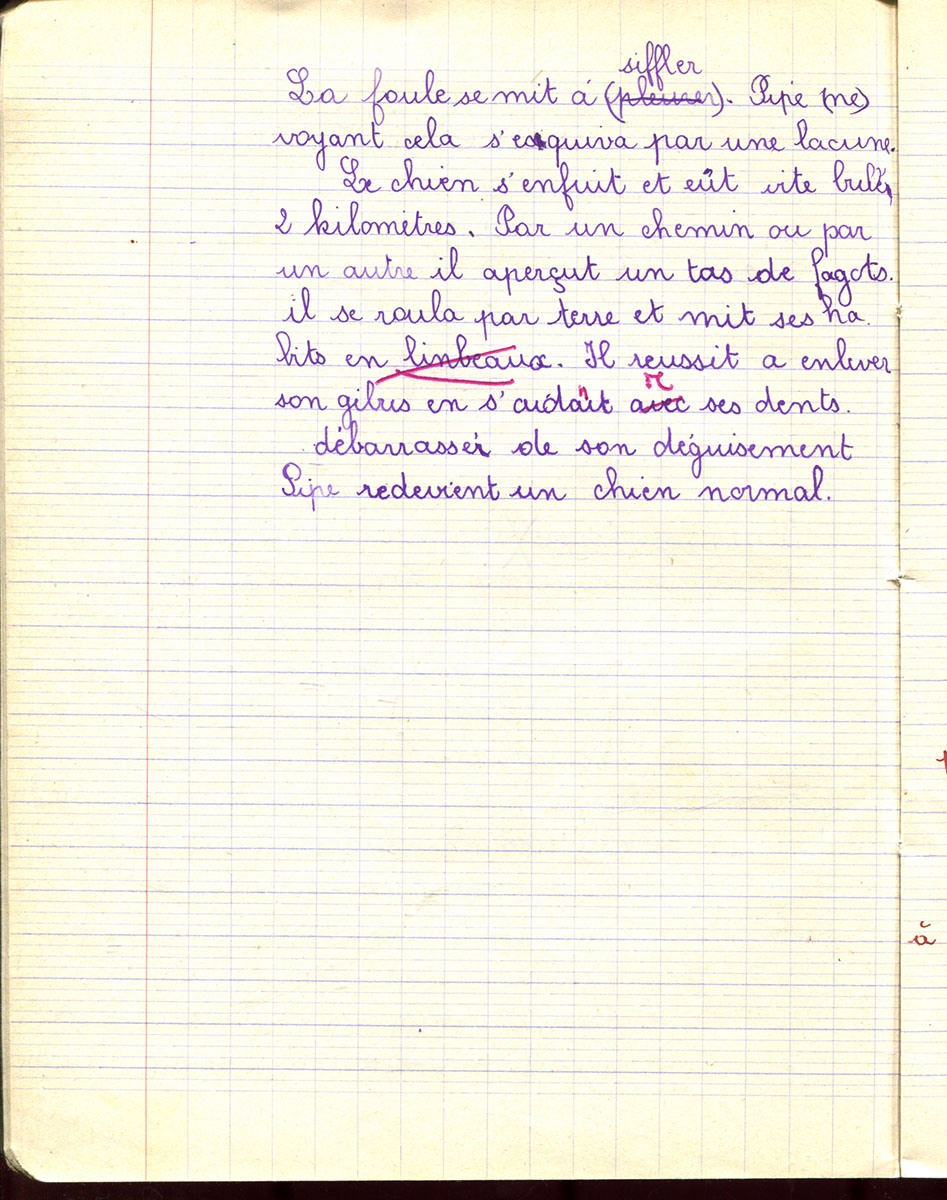 siffler
La foule se mit á (pleurer). Pipe (ne)
voyant cela s'esquiva par une lacune.
Le chien s'enfuit et eût vite bulé
2 kilométres. Par un chemin ou par
un autre il aperçut un tas de fagots.
il se roula par terre et mit ses ha
bits en linbeaux. Il reussit a enlever
son gibus en s'aidant avec ses dents.
débarrasser de son déguisement
Pipe redevient un chien normal.
à